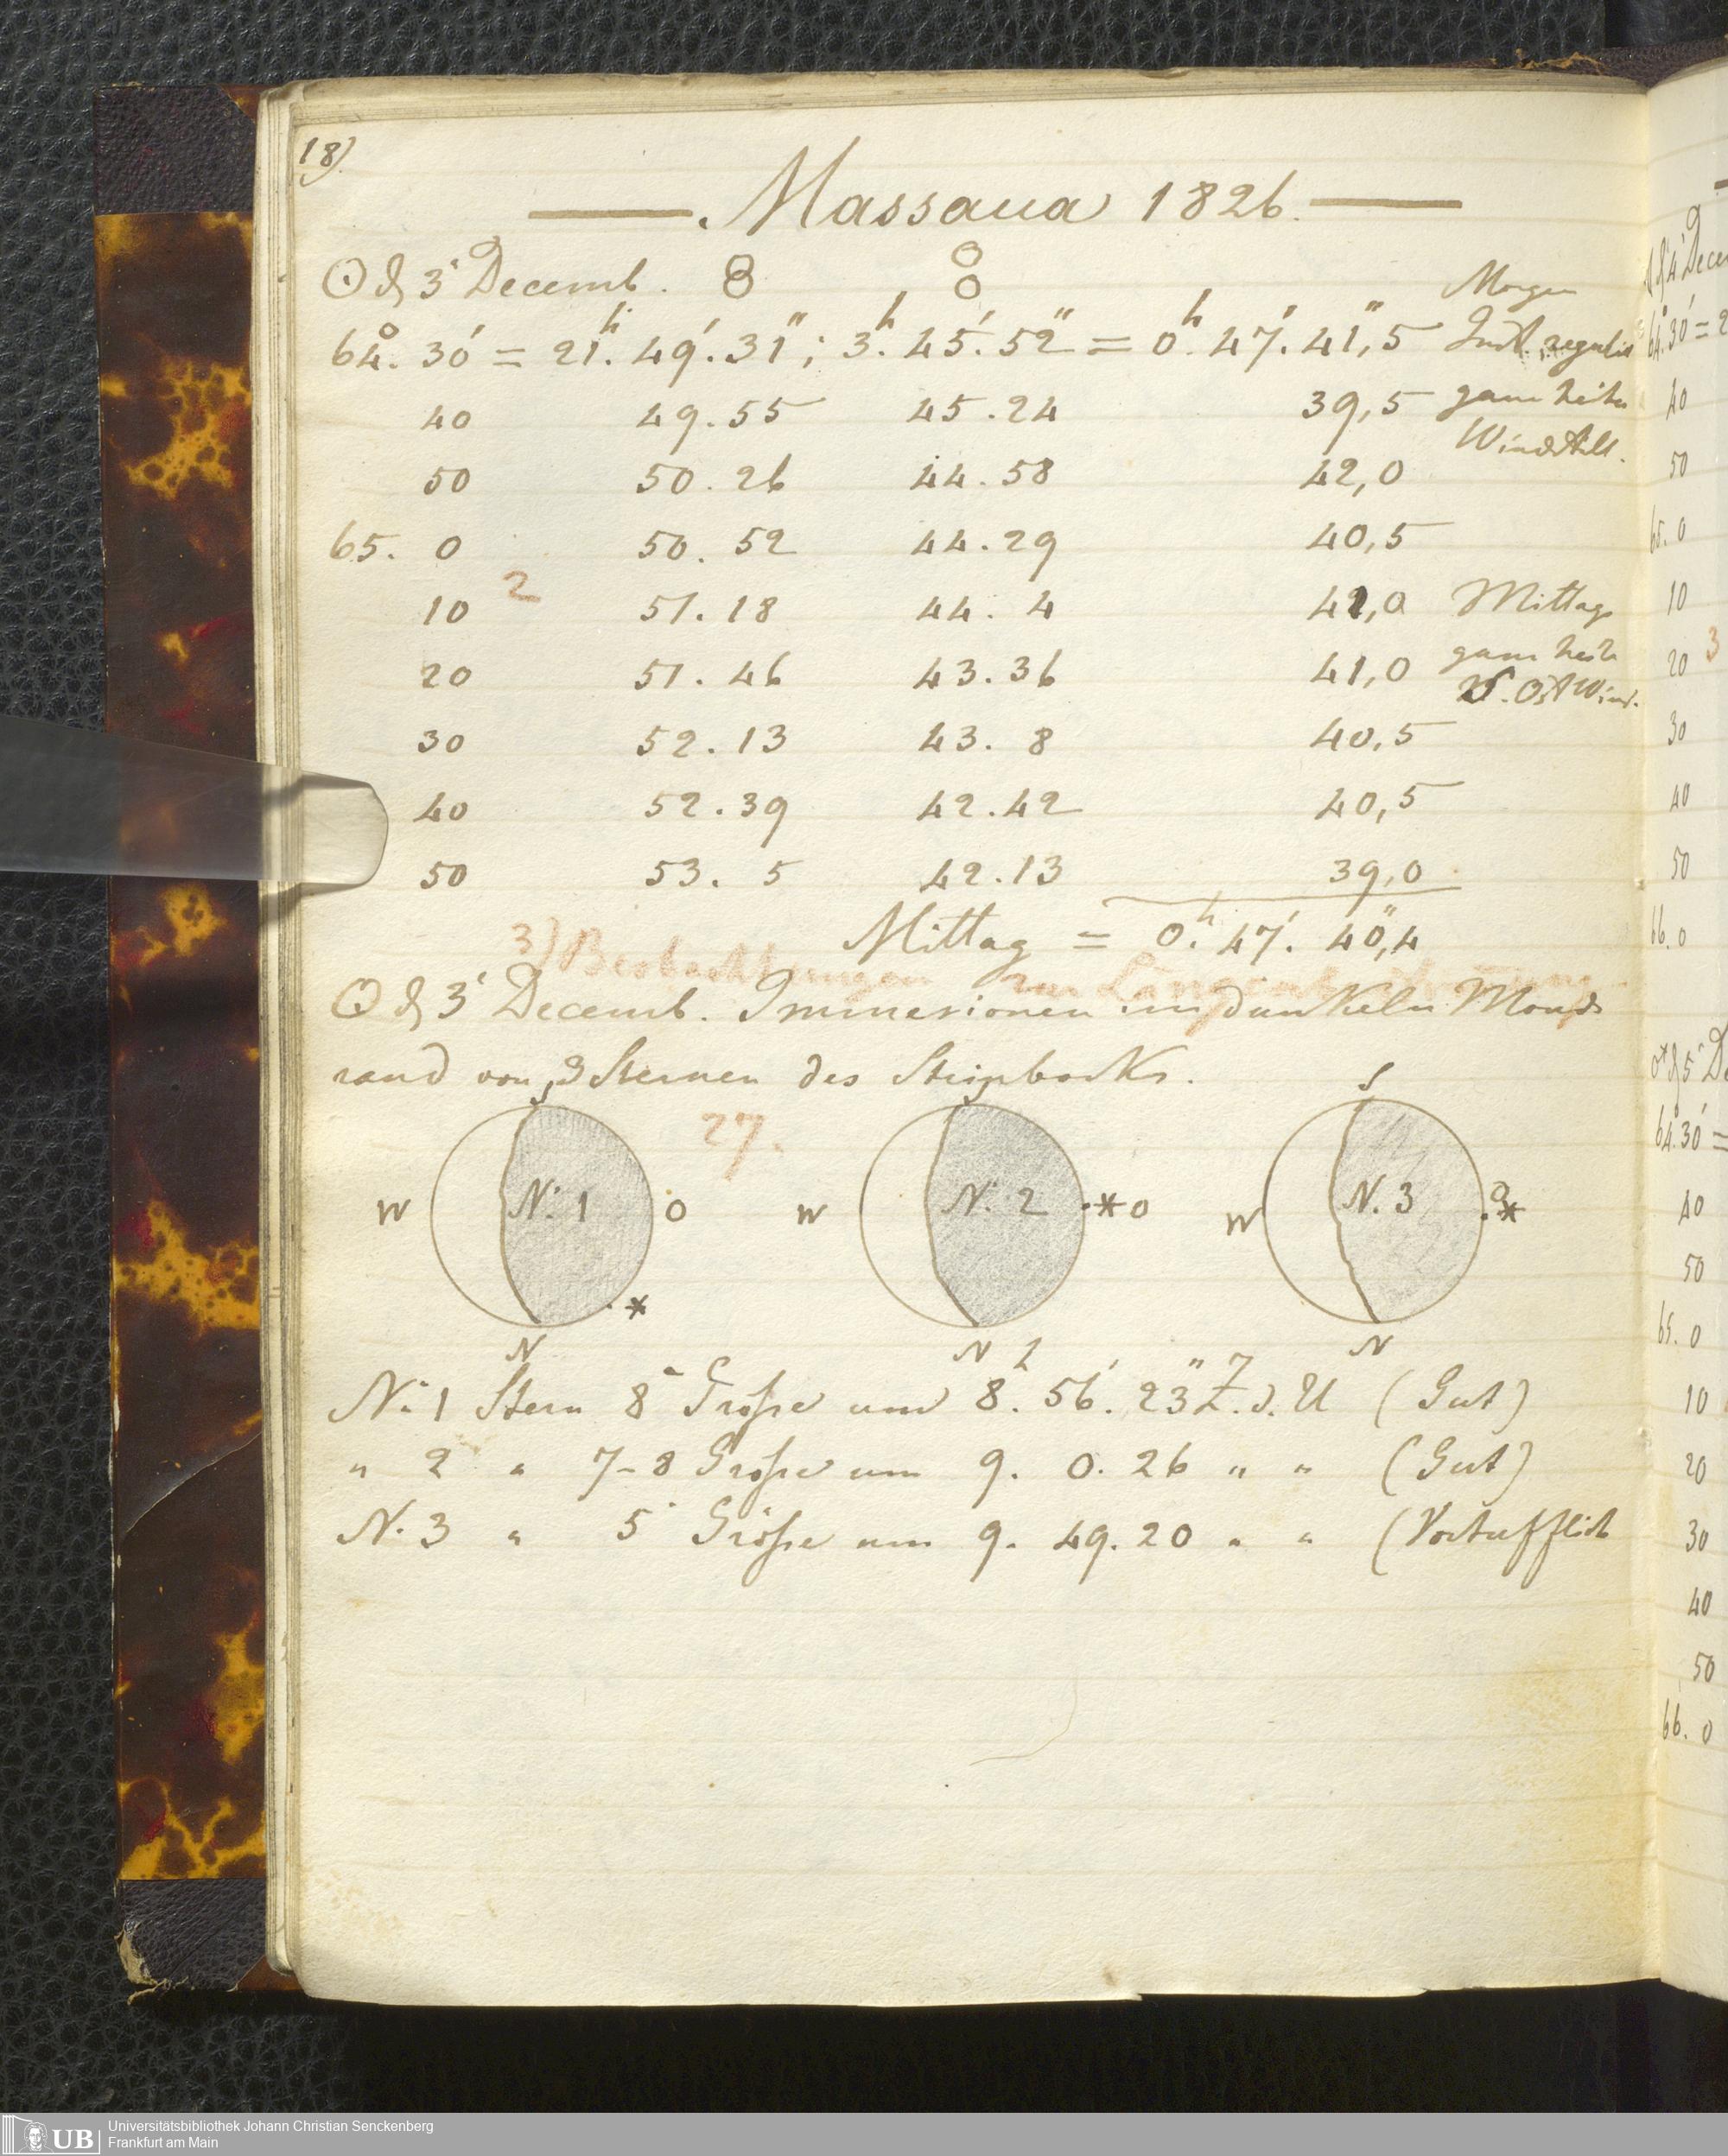 18)
Massaua 1826.
☉ d 3' Decemb.
64.° 30' = 21.h 49.' 31"; 3.h 45.' 52" = 0.h 47.' 41",5
Morgen
Inst. regulirt
40 49.55 45.24 39,5
ganz heiter
Windstill.
50 50.26 44.58 42,0
65. 0 50.52 44.29 40,5
10 2 51.18 44. 4 41,0
Mittags
20 51.46 43.36 41,0
ganz heiter
Ost Wind.
30 52.13 43. 8 40,5
40 52.39 42.42 40,5
50 53. 5 42.13 39,0
Mittag = 0.h 47.' 40",4
3) Beobachtungen zur Längenbestimmung
☉ d 3' Decemb. Immersionen im dunkeln Monds
rand von 3 Sternen des Steinbocks.
27.
S S S
W N: 1 O W N: 2 * O W N. 3 O *
*
N N N
N: 1 Stern 8 Größe um 8. 56.' 23" Z. d. U (Gut)
" 2 " 7-8 Größe um 9. 0. 26 " " (Gut)
N. 3 " 5 Größe um 9. 49. 20 " " (Vortrefflich
d 4' Decem
64.° 30' = 2
40
50
65. 0
10
20 3
30
40
50
66. 0
d 5' De
64.° 30' =
40
50
65. 0
10
20
30
40
50
66. 0
UB Universitätsbibliothek Johann Christian Senckenberg
Frankfurt am Main